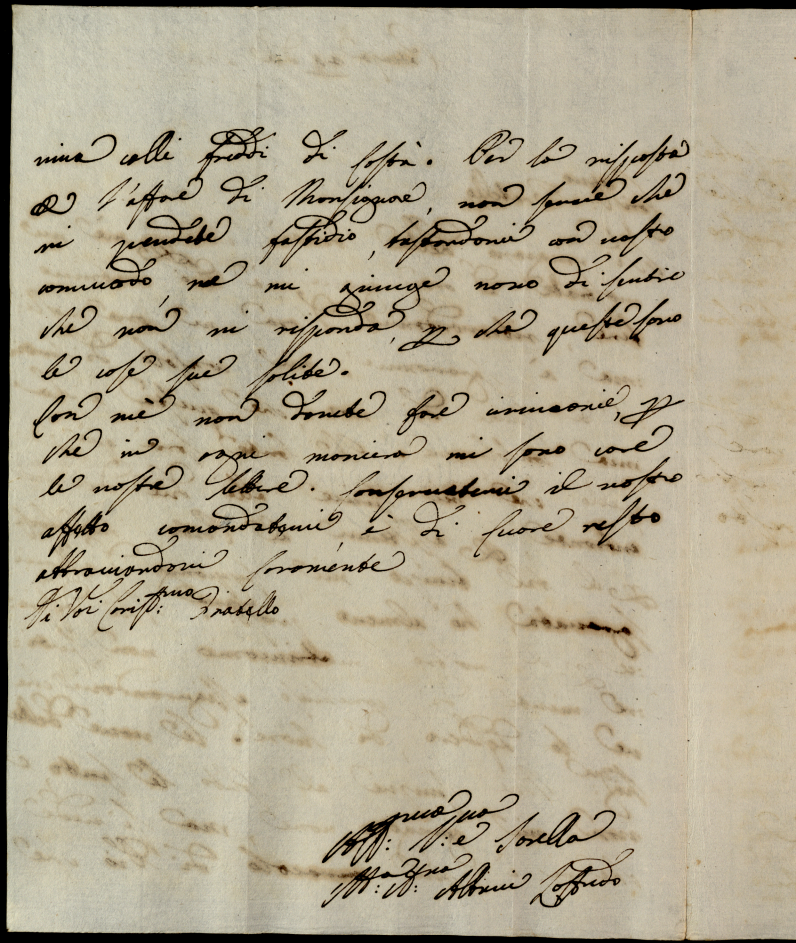 nina colli freddi di costà. Per la risposta
l'affare di Monsignore, non serve che
vi prendete fastidio, bastandomi con vostro
commodo, ne mi giunge novo di sentire
che non vi risponda, che queste sono
le cose sue solite.
Con mè non dovete fare cirimonie,
che in ogni maniera mi sono care
le vostre lettere. Conservatemi il vostro
affetto comandatemi, e di cuore resto
abbraciandovi caramente
Di Voi Cariss:mo Fratello
Aff:ma S:va e Sorella
M:a